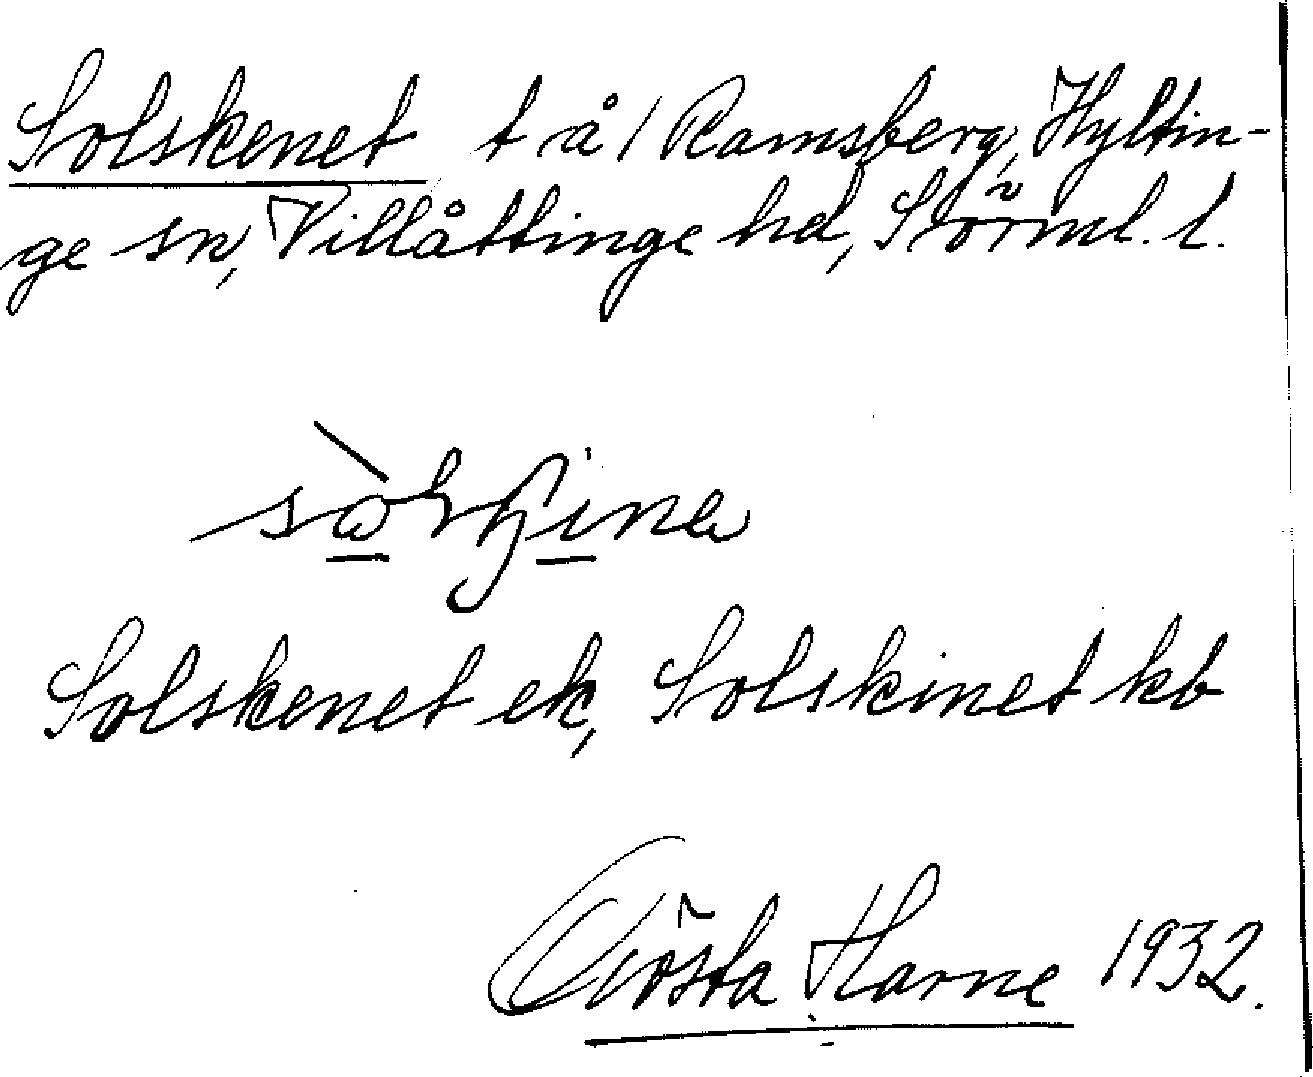 Solskenet t å / Ramsberg, Hyltin-
ge sn, Villåttinge hd, Sörml. l.
Solskenet ek, Solskinet kb
Gösta Harne 1932.